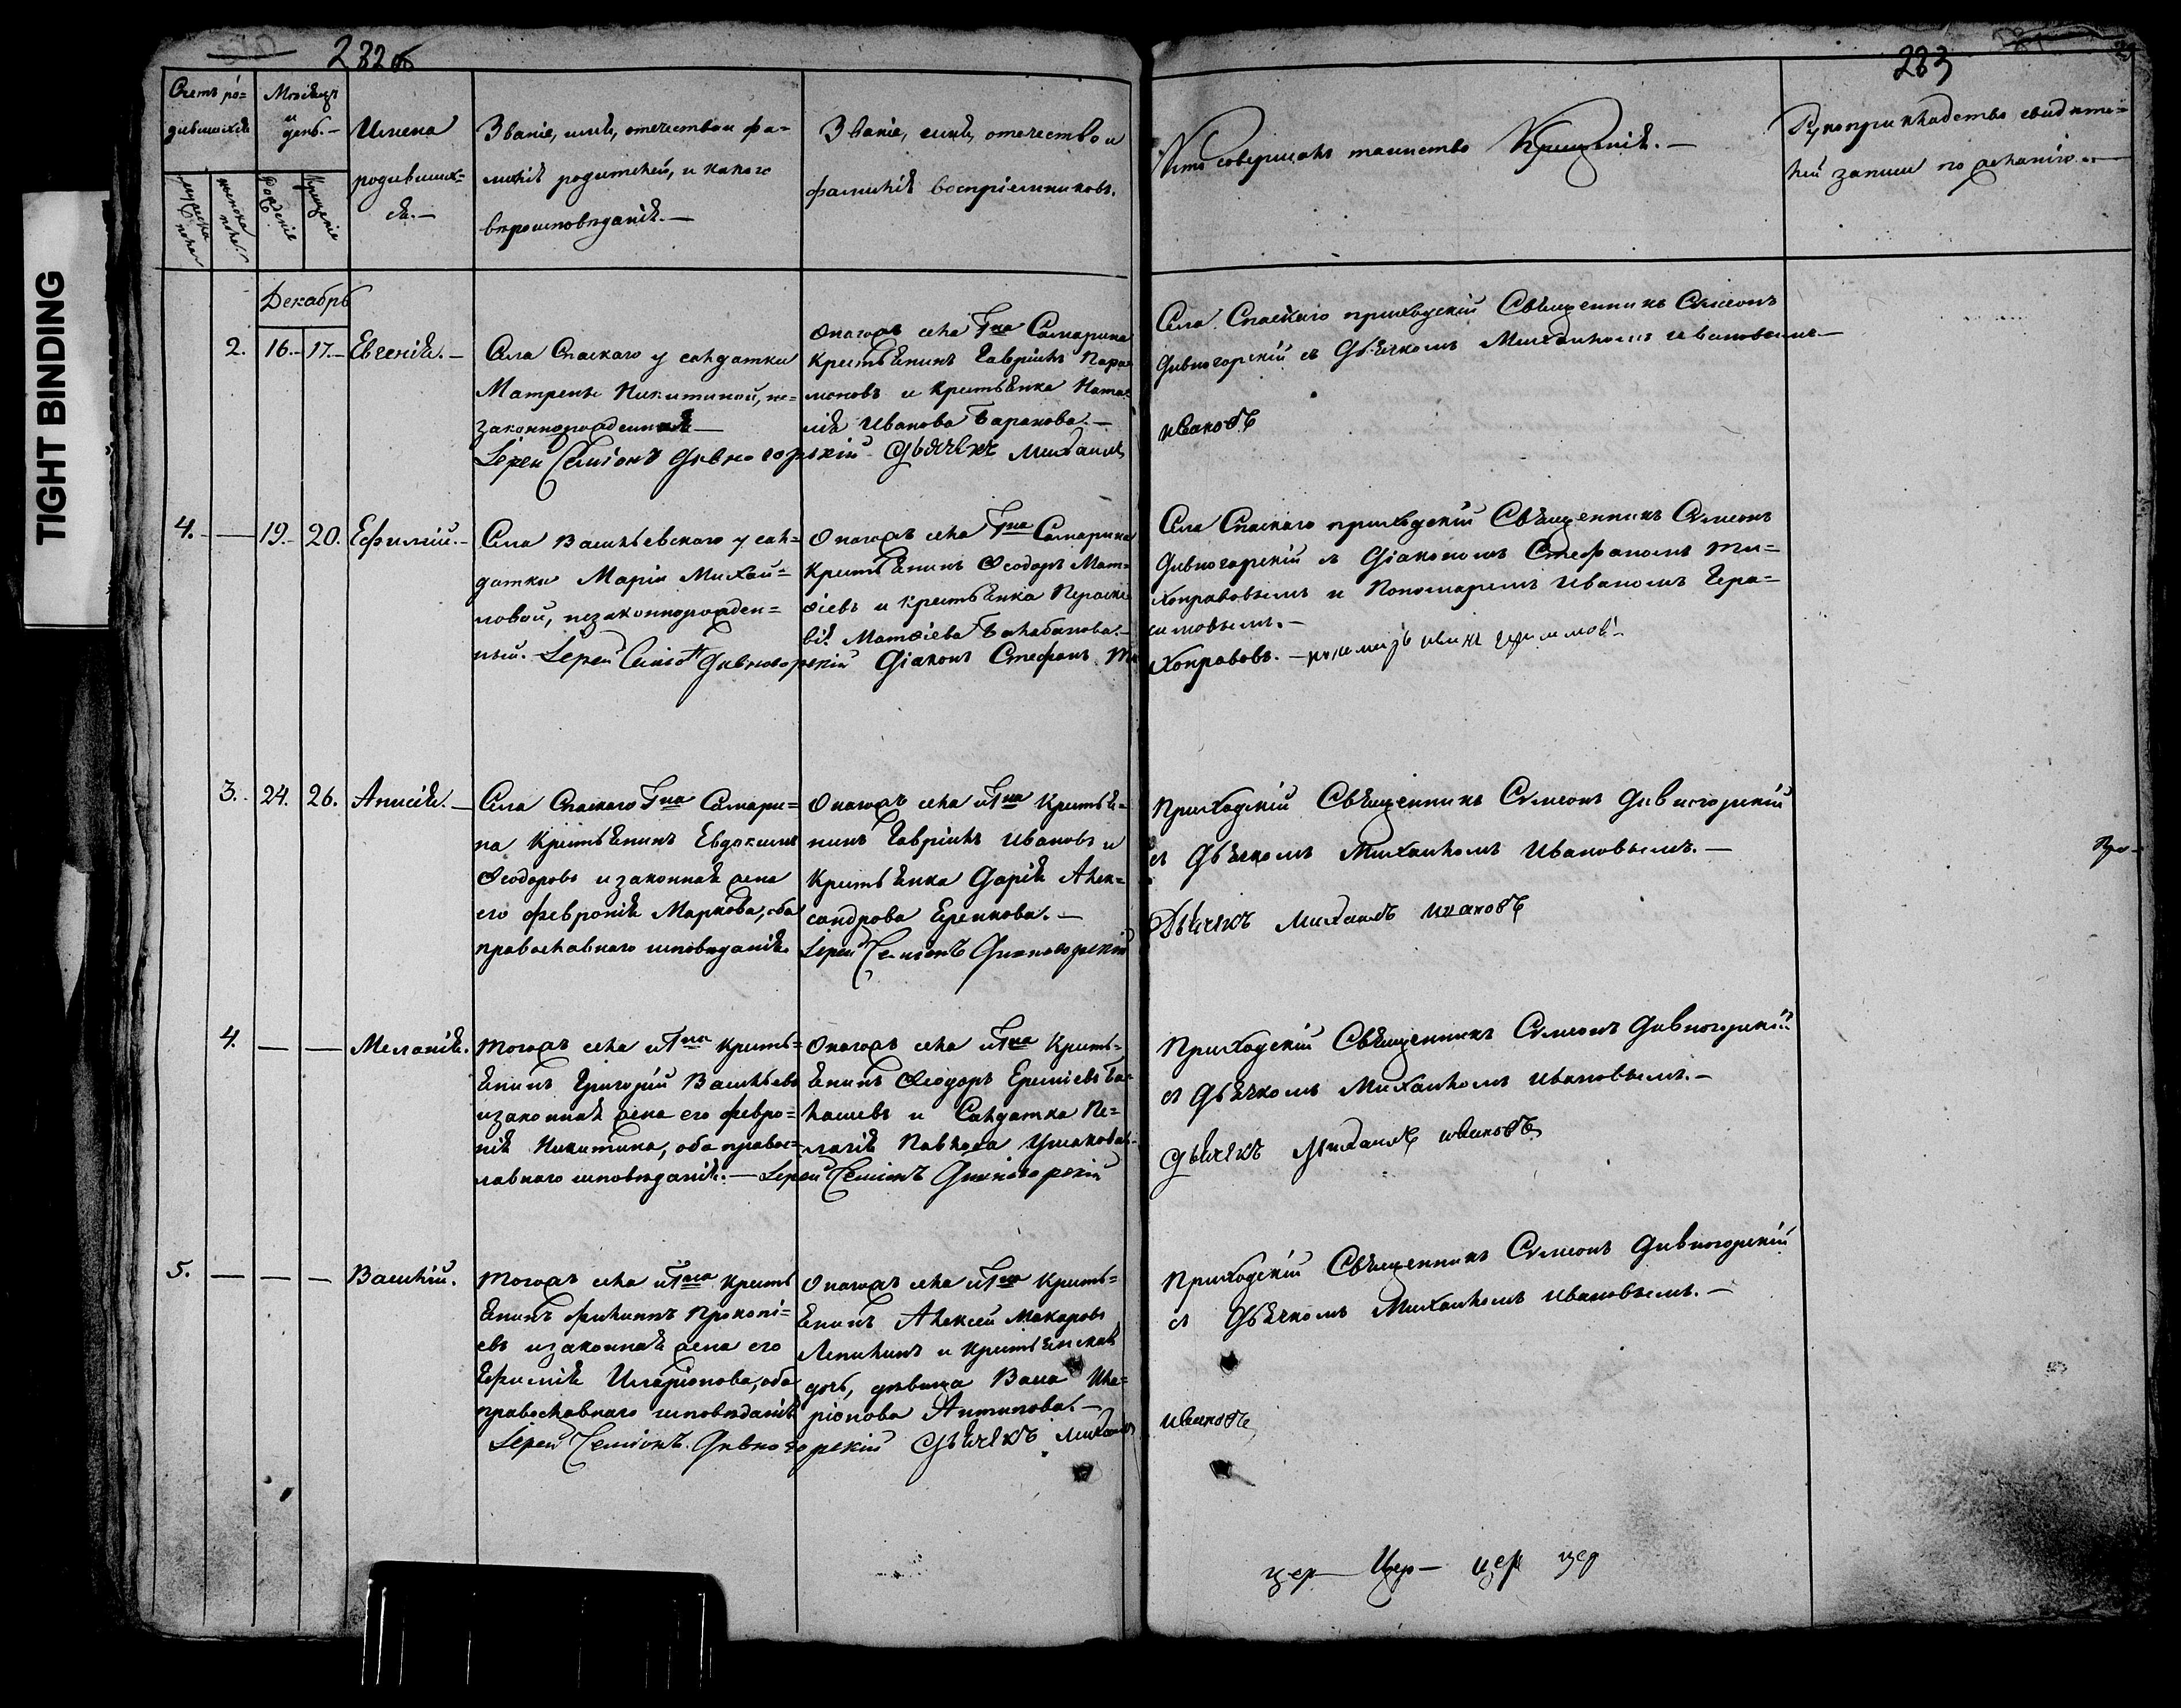 TIGHT BINDING
232об
233
Счетъ ро=
дившихся
Мѣсяцъ
и
день.—
Имена
родивших=
ся.—
Званіе, имя, отечество и фа=
милія родителей, и какого
вѣроисповѣданія.—
Званіе, имя, отечество и
фамилія воспріемниковъ.
Кто совершалъ таинство Крещенія.—
Рукоприкладство свидѣте=
лей записи по желанію.—
мужеска
пола
женска
пола.
Рожденіе
Крещеніе
Декабрь
2. 16.— 17.— Евгенія.—
Села Спаскаго у салдатки
Матрены Никитиной, не=
законнорожденная—
Іерей Семіонъ Дивногорскій Дьячекъ Михаилъ
Онагожъ села Гна Самарина
Крестьянинъ Гавріилъ Пара=
моновъ и Крестьянка Ната=
лія Иванова Баранова.—
Села Спаскаго приходскій Священникъ Сѵмеонъ
Дивногорскій съ Дьячкомъ Михаиломъ Ивановымъ—
Ивановъ
4. — 19.— 20. Ефимій.—
Села Васильевскаго у сал=
датки Маріи Михаи=
ловой, незаконнорожден=
ный. — Іерей Семіонъ Дивногорскій Діаконъ Стефанъ Ти
Онагожъ села Гна Самарина
Крестьянинъ Ѳеодоръ Мат=
ѳіевъ и крестьянка Параске
вія Матѳіева Балабанова.—
Села Спаскаго приходскій Священникъ Сѵмеонъ
Дивногорскій съ Діакономъ Стефаномъ Ти=
хонравовымъ и Пономаремъ Иваномъ Гера=
симовымъ.—
хонравовъ. — пономарь иванъ герасимовъ
3. 24. 26. Анисія.—
Села Спаскаго Гна Самари=
на Крестьянинъ Евдокимъ
Ѳеодоровъ и законная жена
его Февронія Маркова, оба
православнаго исповѣданія
Онагожъ села и Гна Крестья=
нинъ Гавріилъ Ивановъ и
Крестьянка Дарія Алек=
сандрова Еренкова.—
Іерей Семіонъ Дивногорскій
Приходскій Священникъ Сѵмеонъ Дивногорскій
съ Дьячкомъ Михаиломъ Ивановымъ.—
Дьячекъ Михаилъ Ивановъ
4. — — Меланія.
Тогожъ села и Гна Кресть=
янинъ Григорій Васильевъ
и законная жена его Февро=
нія Никитина, оба правос=
лавнаго исповѣданія.— Іерей Семіонъ Дивногорскій
Онагожъ села и Гна Кресть=
янинъ Ѳеодоръ Ермиевъ Ба=
лашевъ и Салдатка Пе=
лагія Павлова Ушакова—
Приходскій Священникъ Сѵмеонъ Дивногорскій
съ Дьячкомъ Михаиломъ Ивановымъ.—
Дьячекъ Михаилъ ивановъ
5. — — — Василій.
Тогожъ села и Гна Кресть
янинъ Филиппъ Прокопі=
евъ и законная жена его
Ефимія Иларіонова, оба
православнаго исповѣданія
Іерей Семіонъ Дивногорскій Дьячекъ Михаилъ
Онагожъ села и Гна Кресть=
янинъ Алексей Макаровъ
Лепихинъ и крестьянская
дочь, дѣвица Васа Ила=
ріонова Антипова.—
Приходскій Священникъ Сѵмеонъ Дивногорскій
съ Дьячкомъ Михаиломъ Ивановымъ.—
ивановъ
цер— Цер— цер цер